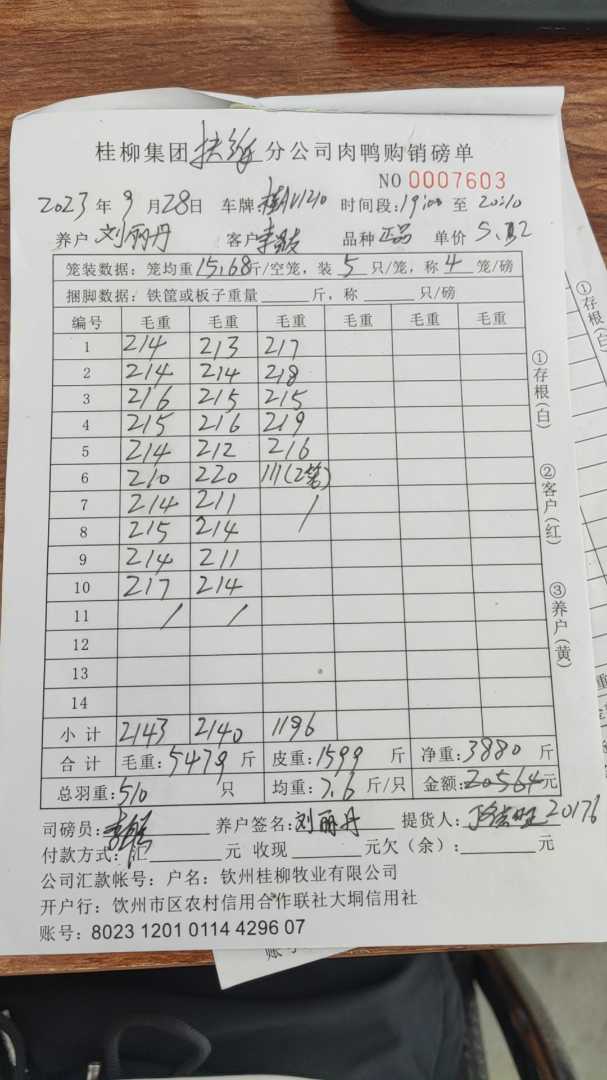 桂柳集团扶绥分公司肉鸭购销磅单
NO 0007603
2023年9月28日 车牌:桂AU1210 时间段:19:00至20:10
养户 刘丽丹 客户 李 品种 正品 单价 5.2
笼装数据:笼均重15.68斤/空笼,装5只/笼,称4笼/磅
捆脚数据:铁筐或板子重量 斤,称 只/磅
编号 毛重 毛重 毛重 毛重 毛重 毛重
1 214 213 217
2 214 214 218
3 216 215 215
4 215 216 219
5 214 212 216
6 210 220 111(2笼)
7 214 211 /
8 215 214
9 214 211
10 217 214
11 / /
12
13
14
小计 2143 2140 1196
合计 毛重:5479斤 皮重:1599斤 净重:3880斤
总羽重:510只 均重:7.6斤/只 金额:20564元
司磅员: 养户签名:刘丽丹 提货人: 20176
付款方式:汇 元 收现 元欠(余): 元
公司汇款帐号:户名:钦州桂柳牧业有限公司
开户行:饮州市区农村信用合作联社大垌信用社
账号:8023 1201 0114 4296 07
①存根(白)
②客户(红)
③养户(黄)
①存根(白)